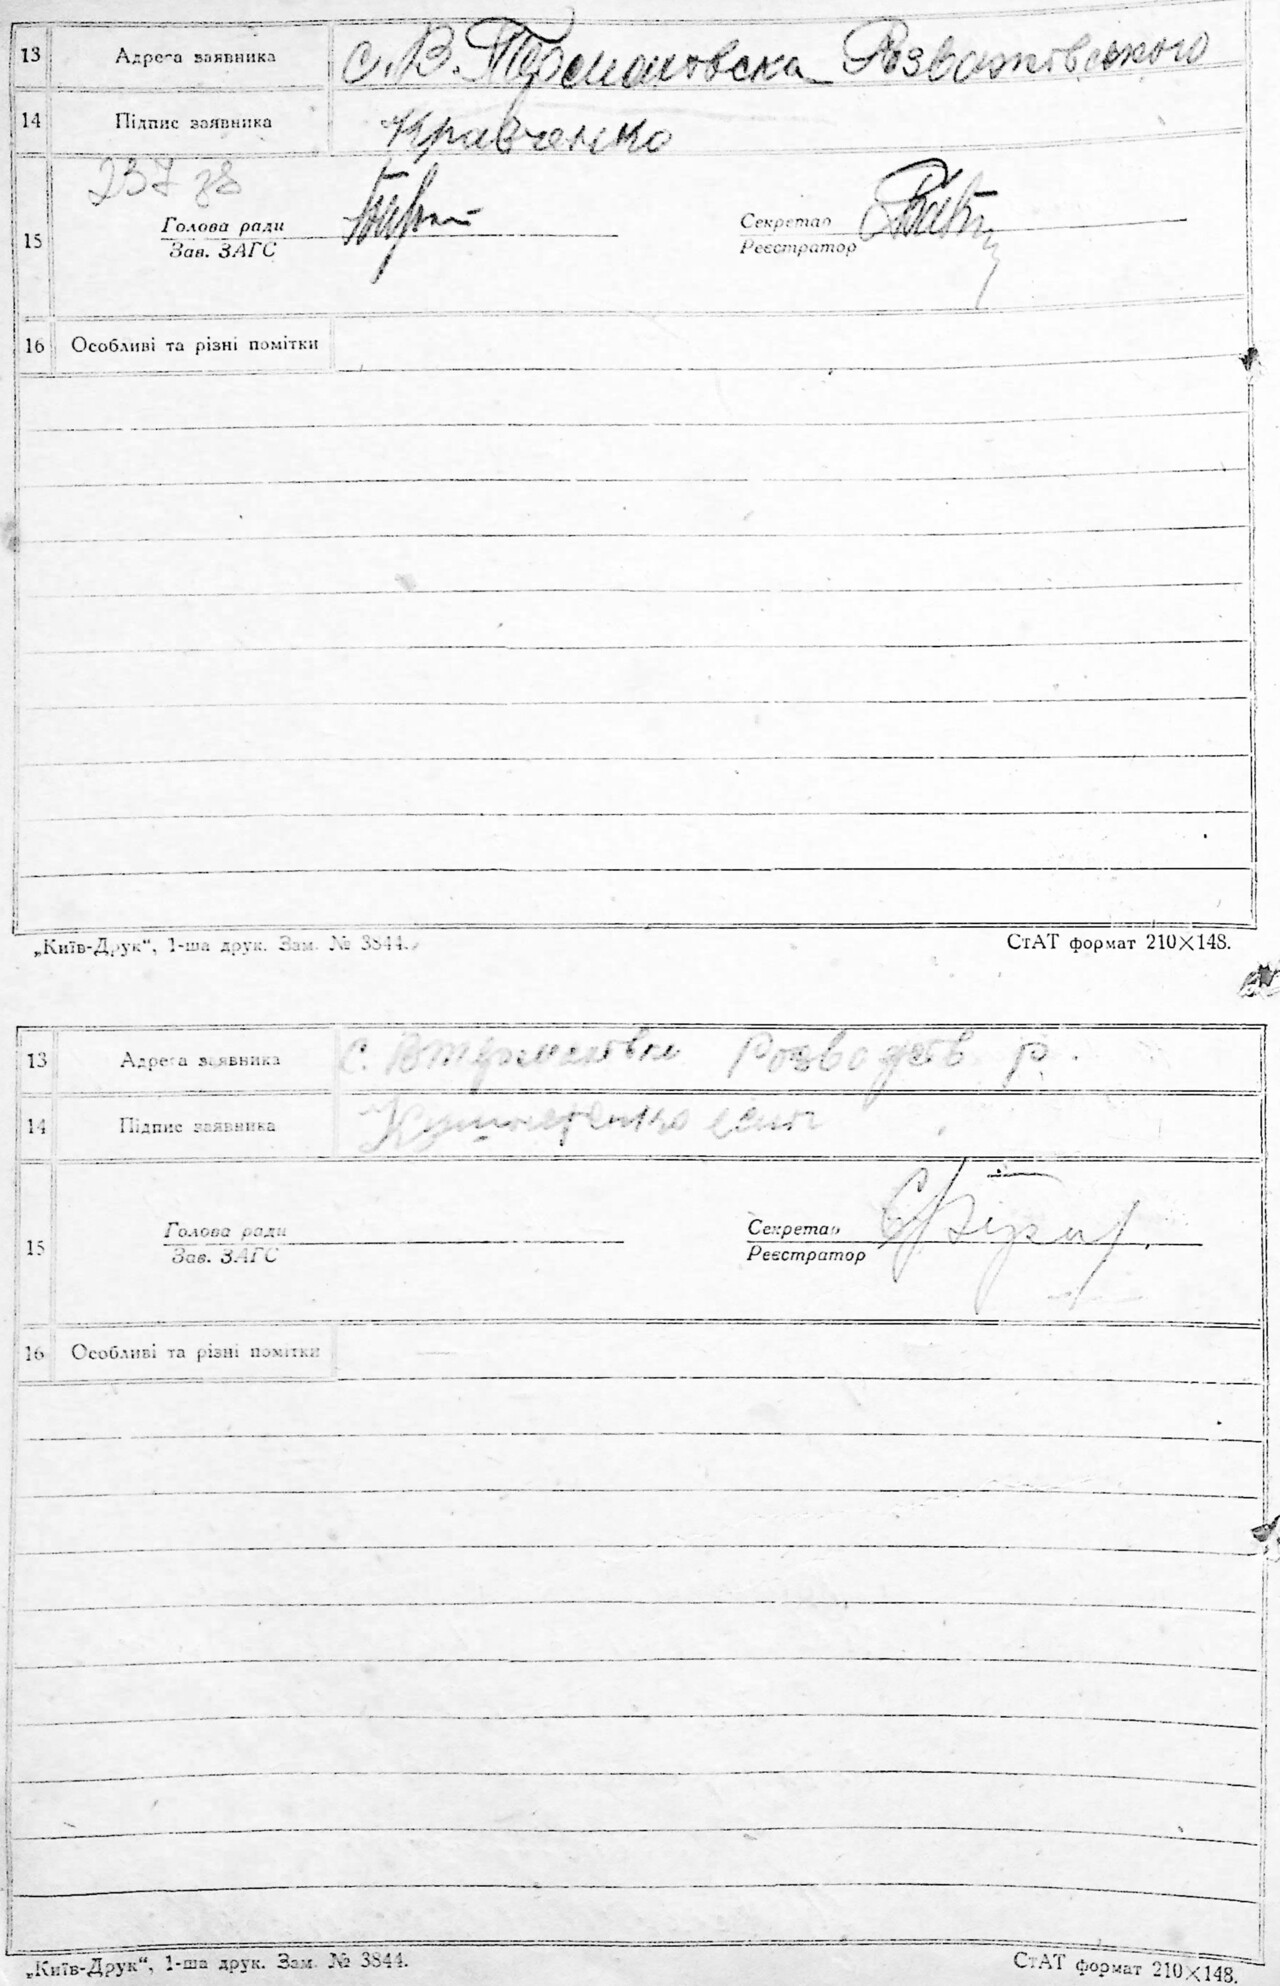 13 Адреса заявника с. В. Термаховска Розважовського
14 Підпис заявника Кравченко
237 зв
Голова ради Секретар
15
Зав. ЗАГС Реєстратор
16 Особливі та різні помітки
„Київ-Друк“, 1-ша друк. Зам. № 3844. СтАТ формат 210×148.
13 Адреса заявника с. Втермаховка р.
14 Підпис заявника
Голова ради Секретар
15
Зав. ЗАГС Реєстратор
16 Особливі та різні помітки
„Київ-Друк“, 1-ша друк. Зам. № 3844. СтАТ формат 210×148.